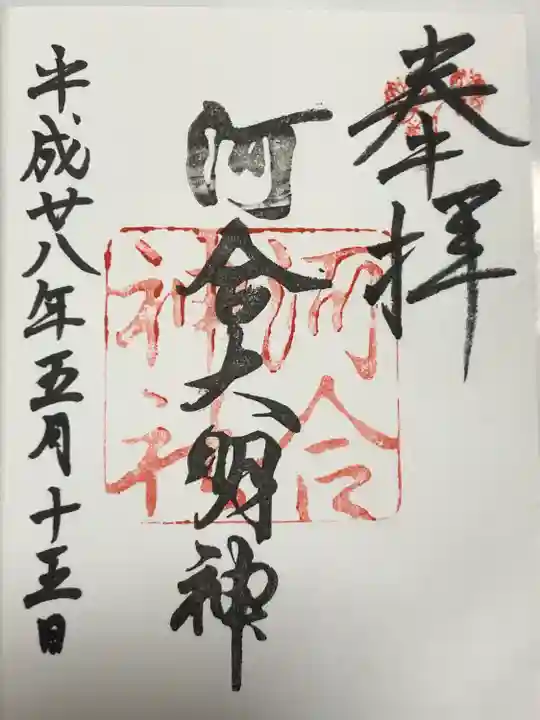 奉拝
河合大明神
河合
神社
平成廿八年五月十五日